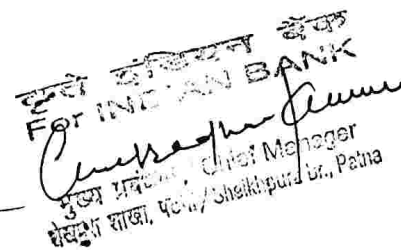 कृते इंडियन बैंक
For INDIAN BANK
मुख्य प्रबंधक / Chief Manager
शेखपुरा शाखा, पटना / Sheikhpura br., Patna